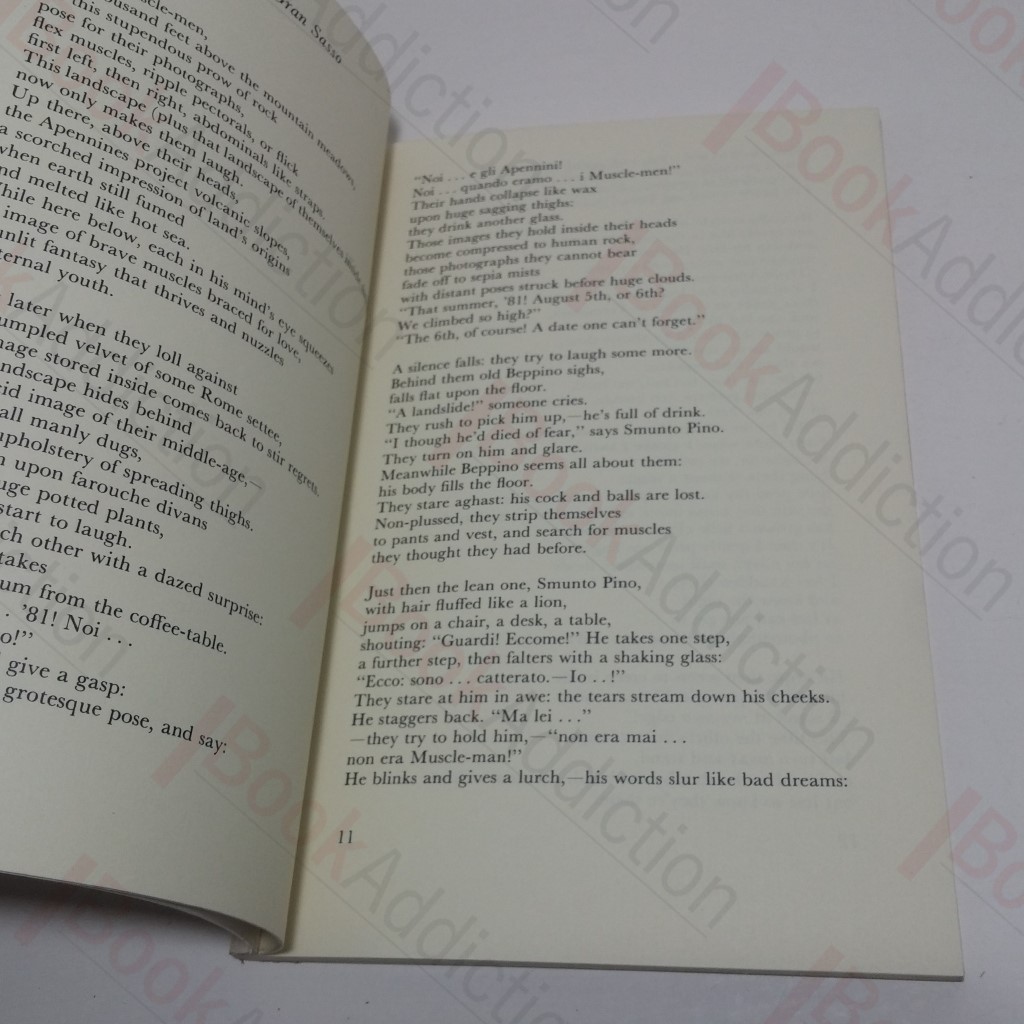 Gran Sasso
cle-men,
ousand feet above the mountain meadows,
this stupendous prow of rock
pose for their photographs,
flex muscles, ripple pectorals, or flick
first left, then right, abdominals like straps.
This landscape (plus that landscape of themselves inside
now only makes them laugh.
Up there, above their heads,
the Apennines project volcanic slopes,
a scorched impression of land's origins
when earth still fumed
nd melted like hot sea.
While here below, each in his mind's eye squeezes
image of brave muscles braced for love,
unlit fantasy that thrives and nuzzles
ternal youth.
later when they loll against
umpled velvet of some Rome settee,
mage stored inside comes back to stir regrets.
ndscape hides behind
cid image of their middle-age,—
all manly dugs,
upholstery of spreading thighs.
n upon farouche divans
uge potted plants,
start to laugh.
ch other with a dazed surprise:
takes
um from the coffee-table.
. . '81! Noi . . .
o!"
give a gasp:
grotesque pose, and say:
"Noi . . . e gli Apennini!
Noi . . . quando eramo . . . i Muscle-men!"
Their hands collapse like wax
upon huge sagging thighs:
they drink another glass.
Those images they hold inside their heads
become compressed to human rock,
those photographs they cannot bear
fade off to sepia mists
with distant poses struck before huge clouds.
"That summer, '81! August 5th, or 6th?
We climbed so high?"
"The 6th, of course! A date one can't forget."
A silence falls: they try to laugh some more.
Behind them old Beppino sighs,
falls flat upon the floor.
"A landslide!" someone cries.
They rush to pick him up,—he's full of drink.
"I though he'd died of fear," says Smunto Pino.
They turn on him and glare.
Meanwhile Beppino seems all about them:
his body fills the floor.
They stare aghast: his cock and balls are lost.
Non-plussed, they strip themselves
to pants and vest, and search for muscles
they thought they had before.
Just then the lean one, Smunto Pino,
with hair fluffed like a lion,
jumps on a chair, a desk, a table,
shouting: "Guardi! Eccome!" He takes one step,
a further step, then falters with a shaking glass:
"Ecco: sono . . . catterato.—Io . . !"
They stare at him in awe: the tears stream down his cheeks.
He staggers back. "Ma lei . . ."
—they try to hold him,—"non era mai . . .
non era Muscle-man!"
He blinks and gives a lurch,—his words slur like bad dreams:
11
BookAddiction